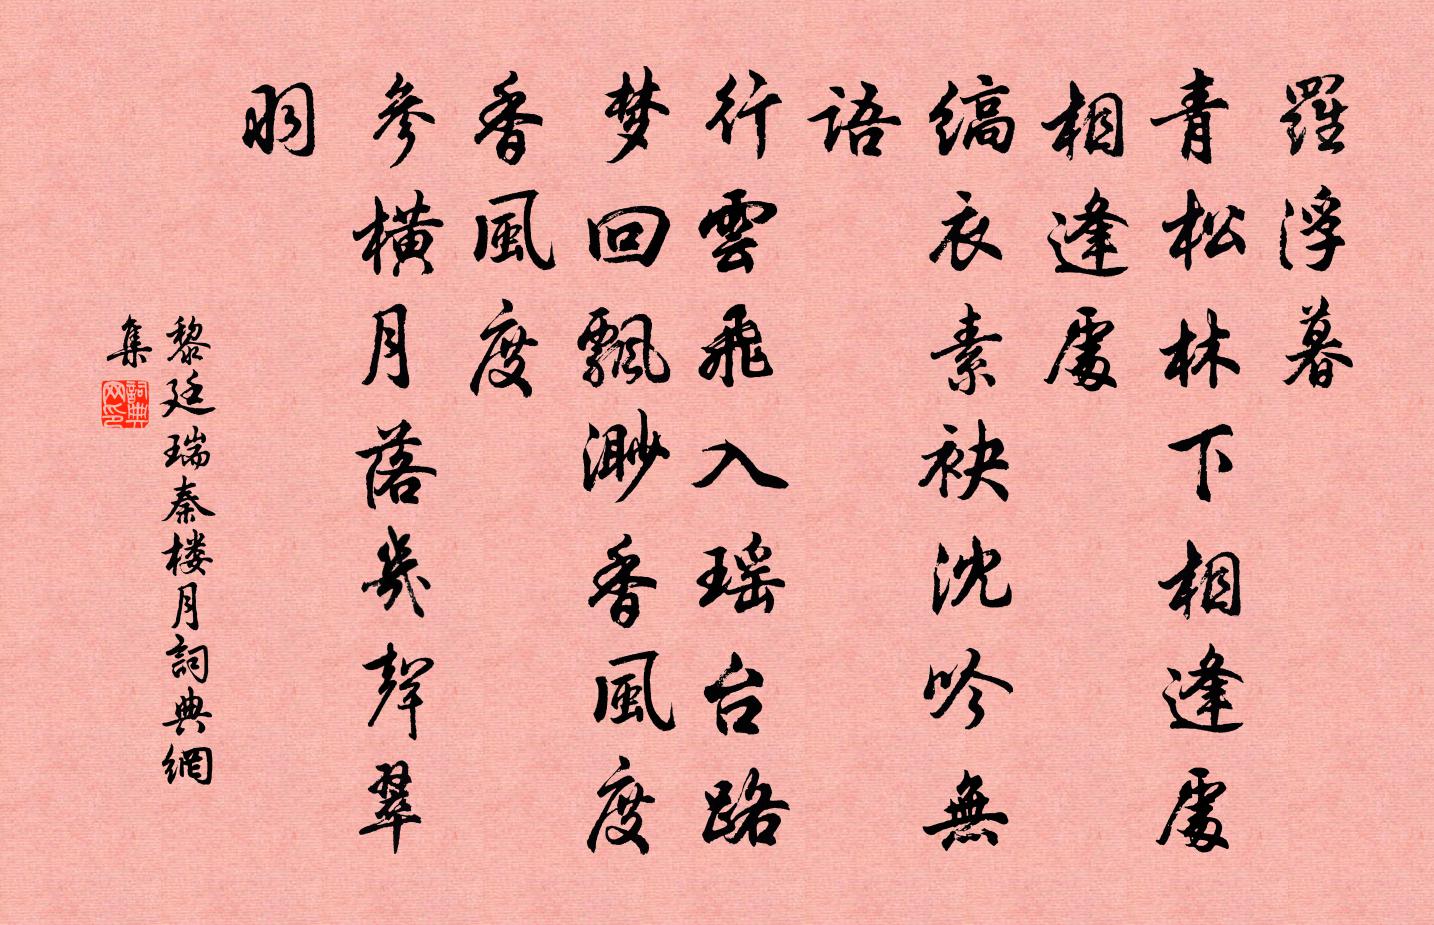 羅浮暮
青松林下相逢處
相逢處
缟衣素袂沈吟無
語
行雲飛入瑶台路
梦回飄渺香風度
香風度
參橫月落幾聲翠
羽
黎廷瑞秦楼月詞典網
集
詞典网印